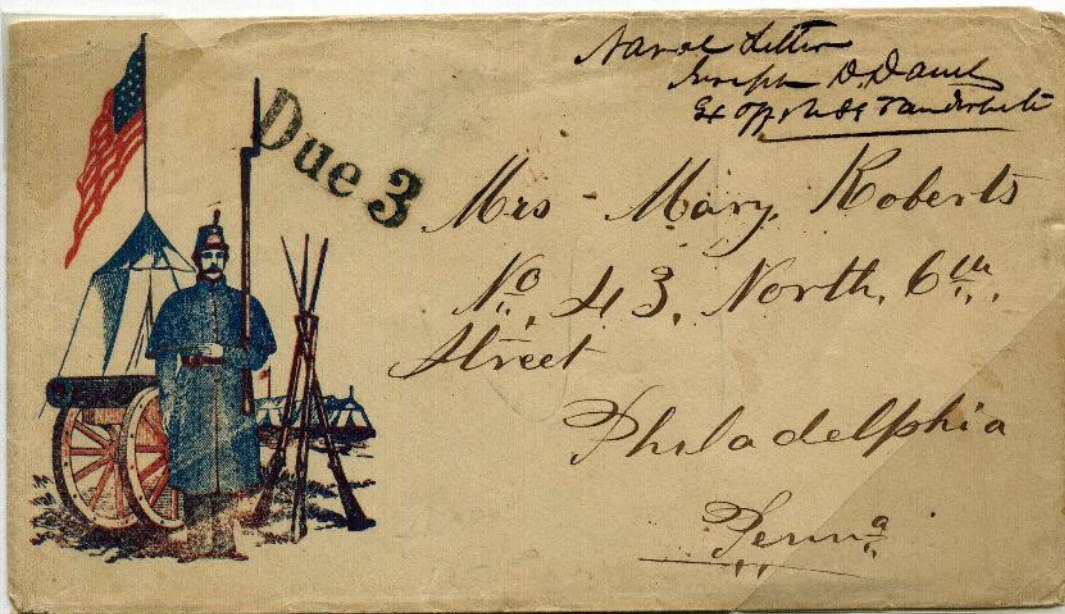 Naval Letter
Joseph D. Daniels
Ex Off U.S.S Vanderbilt
Due 3
Mrs Mary. Roberts
No. 43. North. 6th.
Street
Philadelphia
Penna